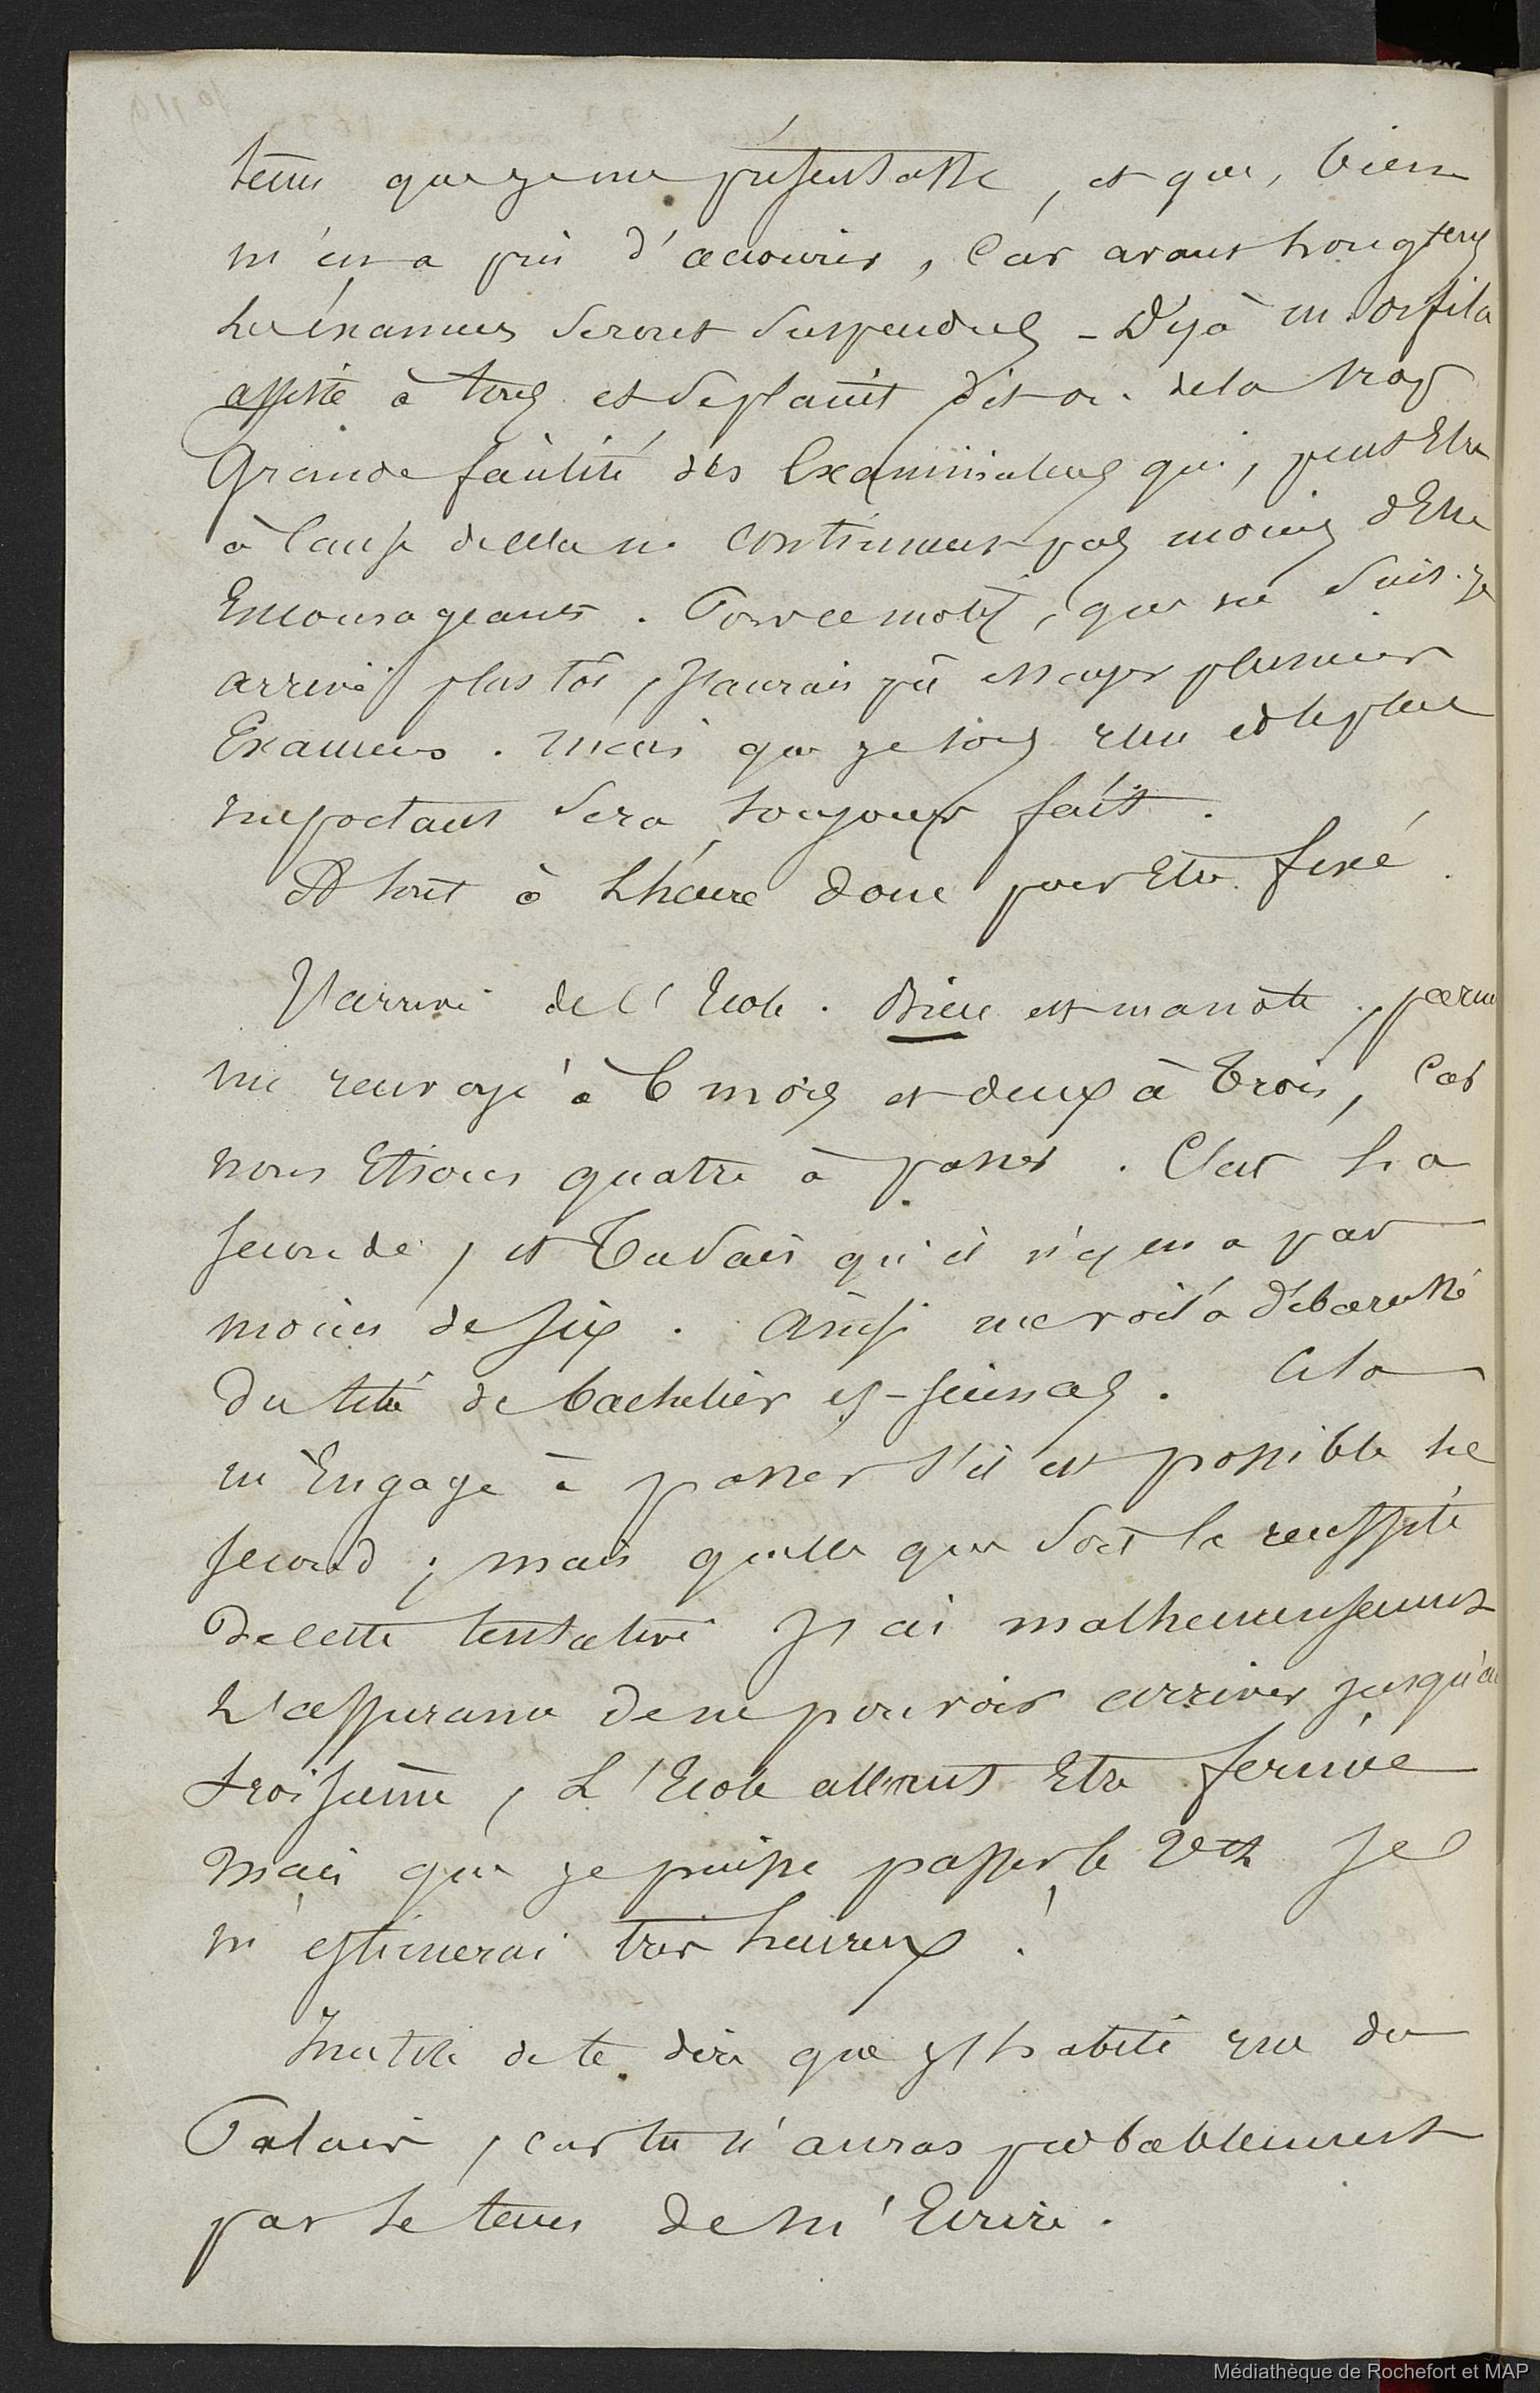 tems que je me présentasse, et que, bien
m'en a pris d'accourir, Car avant Longtems
Les éxamens Seront Suspendus - Déjà m. orfila
assiste à tous et Se plaint dit-on. de la trop
Grande facilité des Examinateurs qui, peut Etre
à Cause de cela ne Continuent pas moins d'Etre
Encourageants. Pour ce motif, que ne Suis-je
arrivé plus tôt, J'aurais pû essayer plusieurs
Examens. mais que je sois reçu et le plus
important Sera toujours fait.
A tout à L'héure donc pour Etre fixé.
J'arrive de l'Ecole. Bien est ma note,
me renvoyé à 6 mois et deux à Trois, Car
nous Etions quatre à passer. C'est La
seconde, et Tu Sais qu'il n'y en a pas
moins de six. Ainsi me voilà débarassé
du titre de bachelier es-sciences. Cela
m'Engage à passer s'il est possible Le
second; mais quelle que Soit la reussite
De cette tentative J'ai malheureusement
L'assurance de ne pouvoir arriver jusqu'au
troisième, L'Ecole allant Etre fermée
mais que je puisse passer le 2eme Je
m'estimerai très heureux!
Inutile de te dire que j'habite rue du
Palais, car tu n'auras probablement
pas Le tems de m'Ecrire.
Médiathèque de Rochefort et MAP